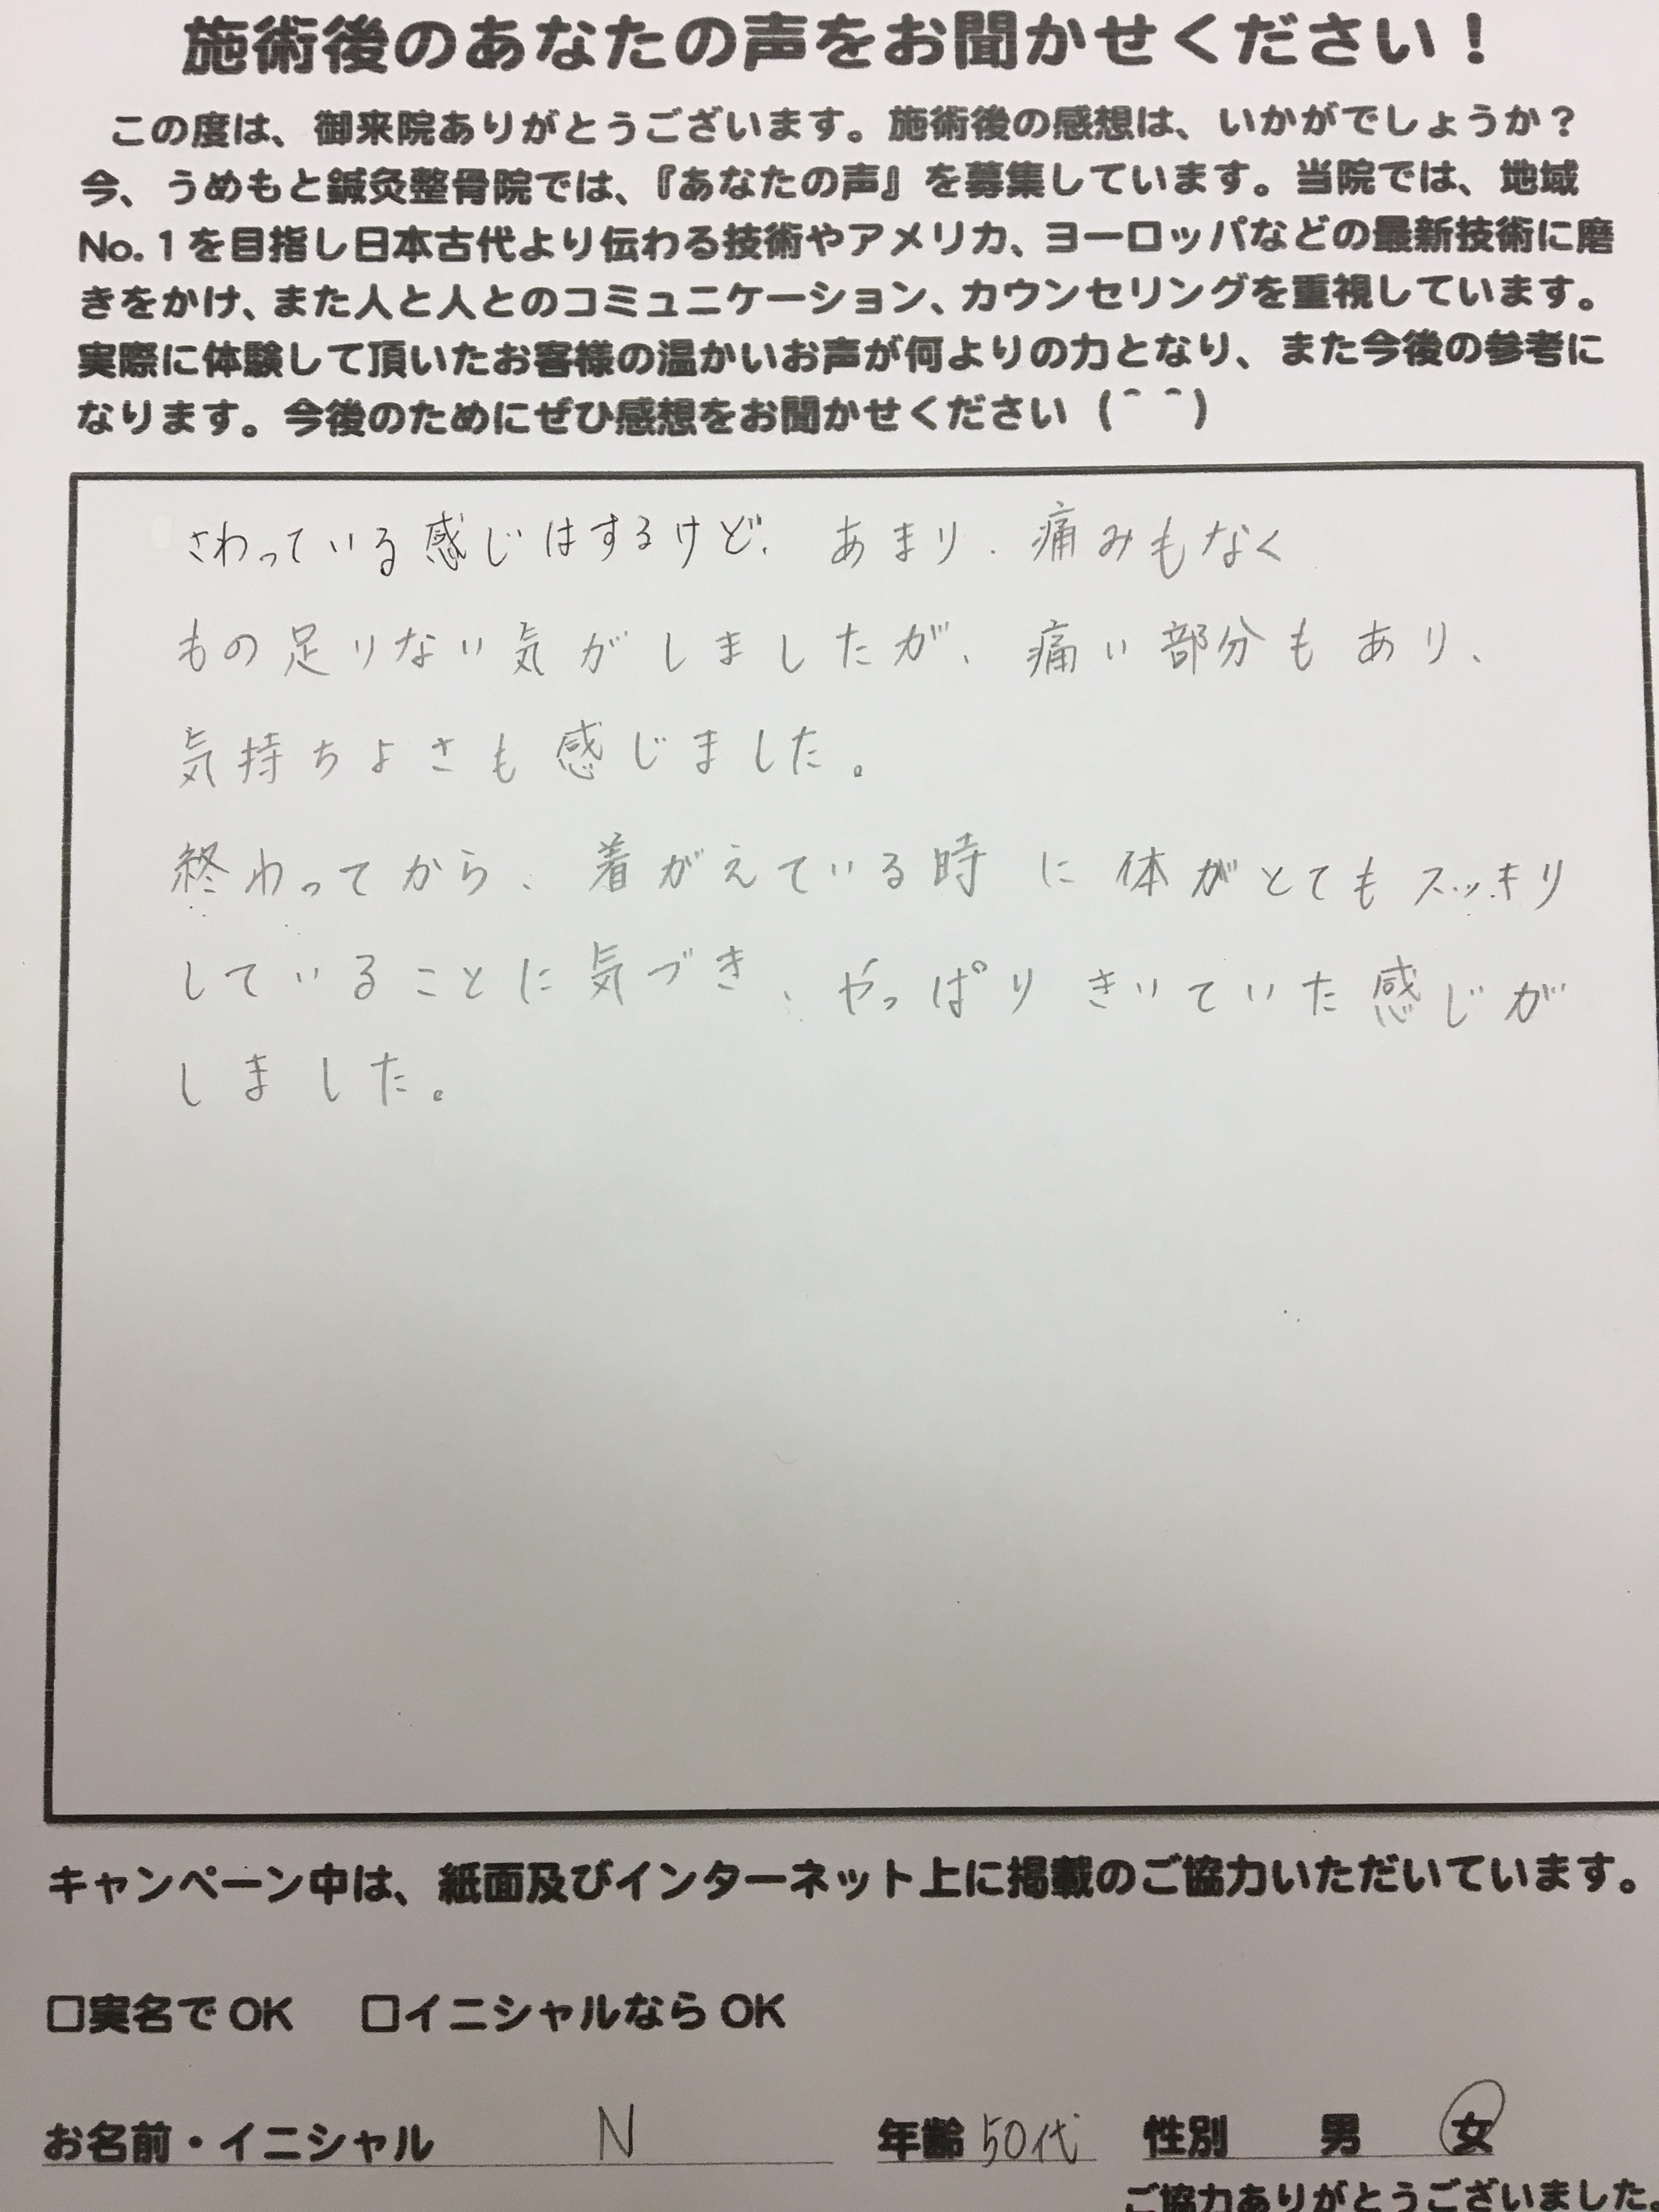 施術後のあなたの声をお聞かせください！
この度は、御来院ありがとうございます。施術後の感想は、いかがでしょうか？
今、うめもと鍼灸整骨院では、『あなたの声』を募集しています。当院では、地域
No.1を目指し日本古代より伝わる技術やアメリカ、ヨーロッパなどの最新技術に磨
きをかけ、また人と人とのコミュニケーション、カウンセリングを重視しています。
実際に体験して頂いたお客様の温かいお声が何よりの力となり、また今後の参考に
なります。今後のためにぜひ感想をお聞かせください（＾＾）
さわっている感じはするけど、あまり、痛みもなく
もの足りない気がしましたが、痛い部分もあり、
気持ちよさも感じました。
終わってから、着がえている時に体がとてもスッキリ
していることに気づき、やっぱりきいていた感じが
しました。
キャンペーン中は、紙面及びインターネット上に掲載のご協力いただいています。
□実名でOK　□イニシャルならOK
お名前・イニシャル　N　年齢 50代　性別　男　女
ご協力ありがとうございました。